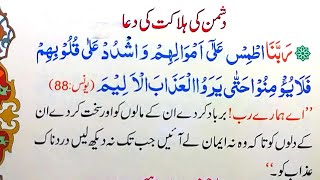 دشمن کی ہلاکت کی دعا
رَبَّنَا اطْمِسْ عَلٰٓى اَمْوَالِهِمْ وَ اشْدُدْ عَلٰى قُلُوْبِهِمْ
فَلَا يُؤْمِنُوْا حَتّٰى يَرَوُا الْعَذَابَ الْاَلِيْمَ (یونس:88)
”اے ہمارے رب! برباد کردے ان کے مالوں کو اور سخت کردے ان
کے دلوں کو تاکہ وہ نہ ایمان لے آئیں جب تک نہ دیکھ لیں دردناک
عذاب کو۔“